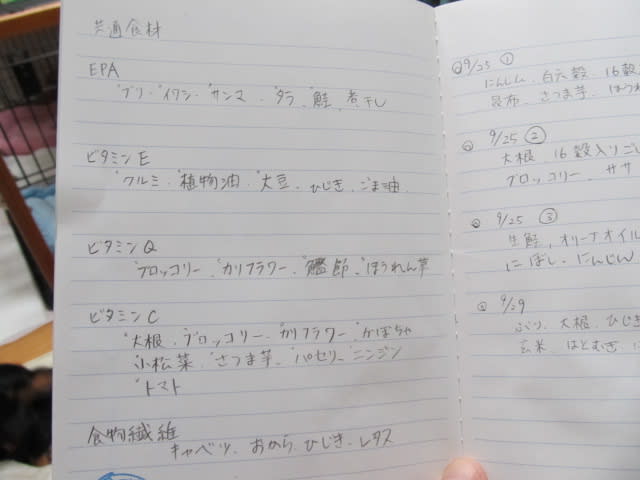 共通食材
EPA
ブリ・イワシ・サンマ・タラ・鮭・煮干し
ビタミンE
クルミ・植物油・大豆・ひじき・ごま油
ビタミンQ
ブロッコリー・カリフラワー・鰹節・ほうれん草
ビタミンC
大根・ブロッコリー・カリフラワー・かぼちゃ
小松菜・さつま芋・パセリ・ニンジン
トマト
食物繊維
キャベツ・おから・ひじき・レタス
9/25 ①
にんじん・白六穀・16穀
昆布・さつま芋・ほうれ
9/25 ②
大根 16穀入りご
ブロッコリー・ササ
9/25 ③
生鮭,オリーブオイル
にぼし・にんじん
9/29
ぶり・大根・ひじき
玄米・はとむぎ・